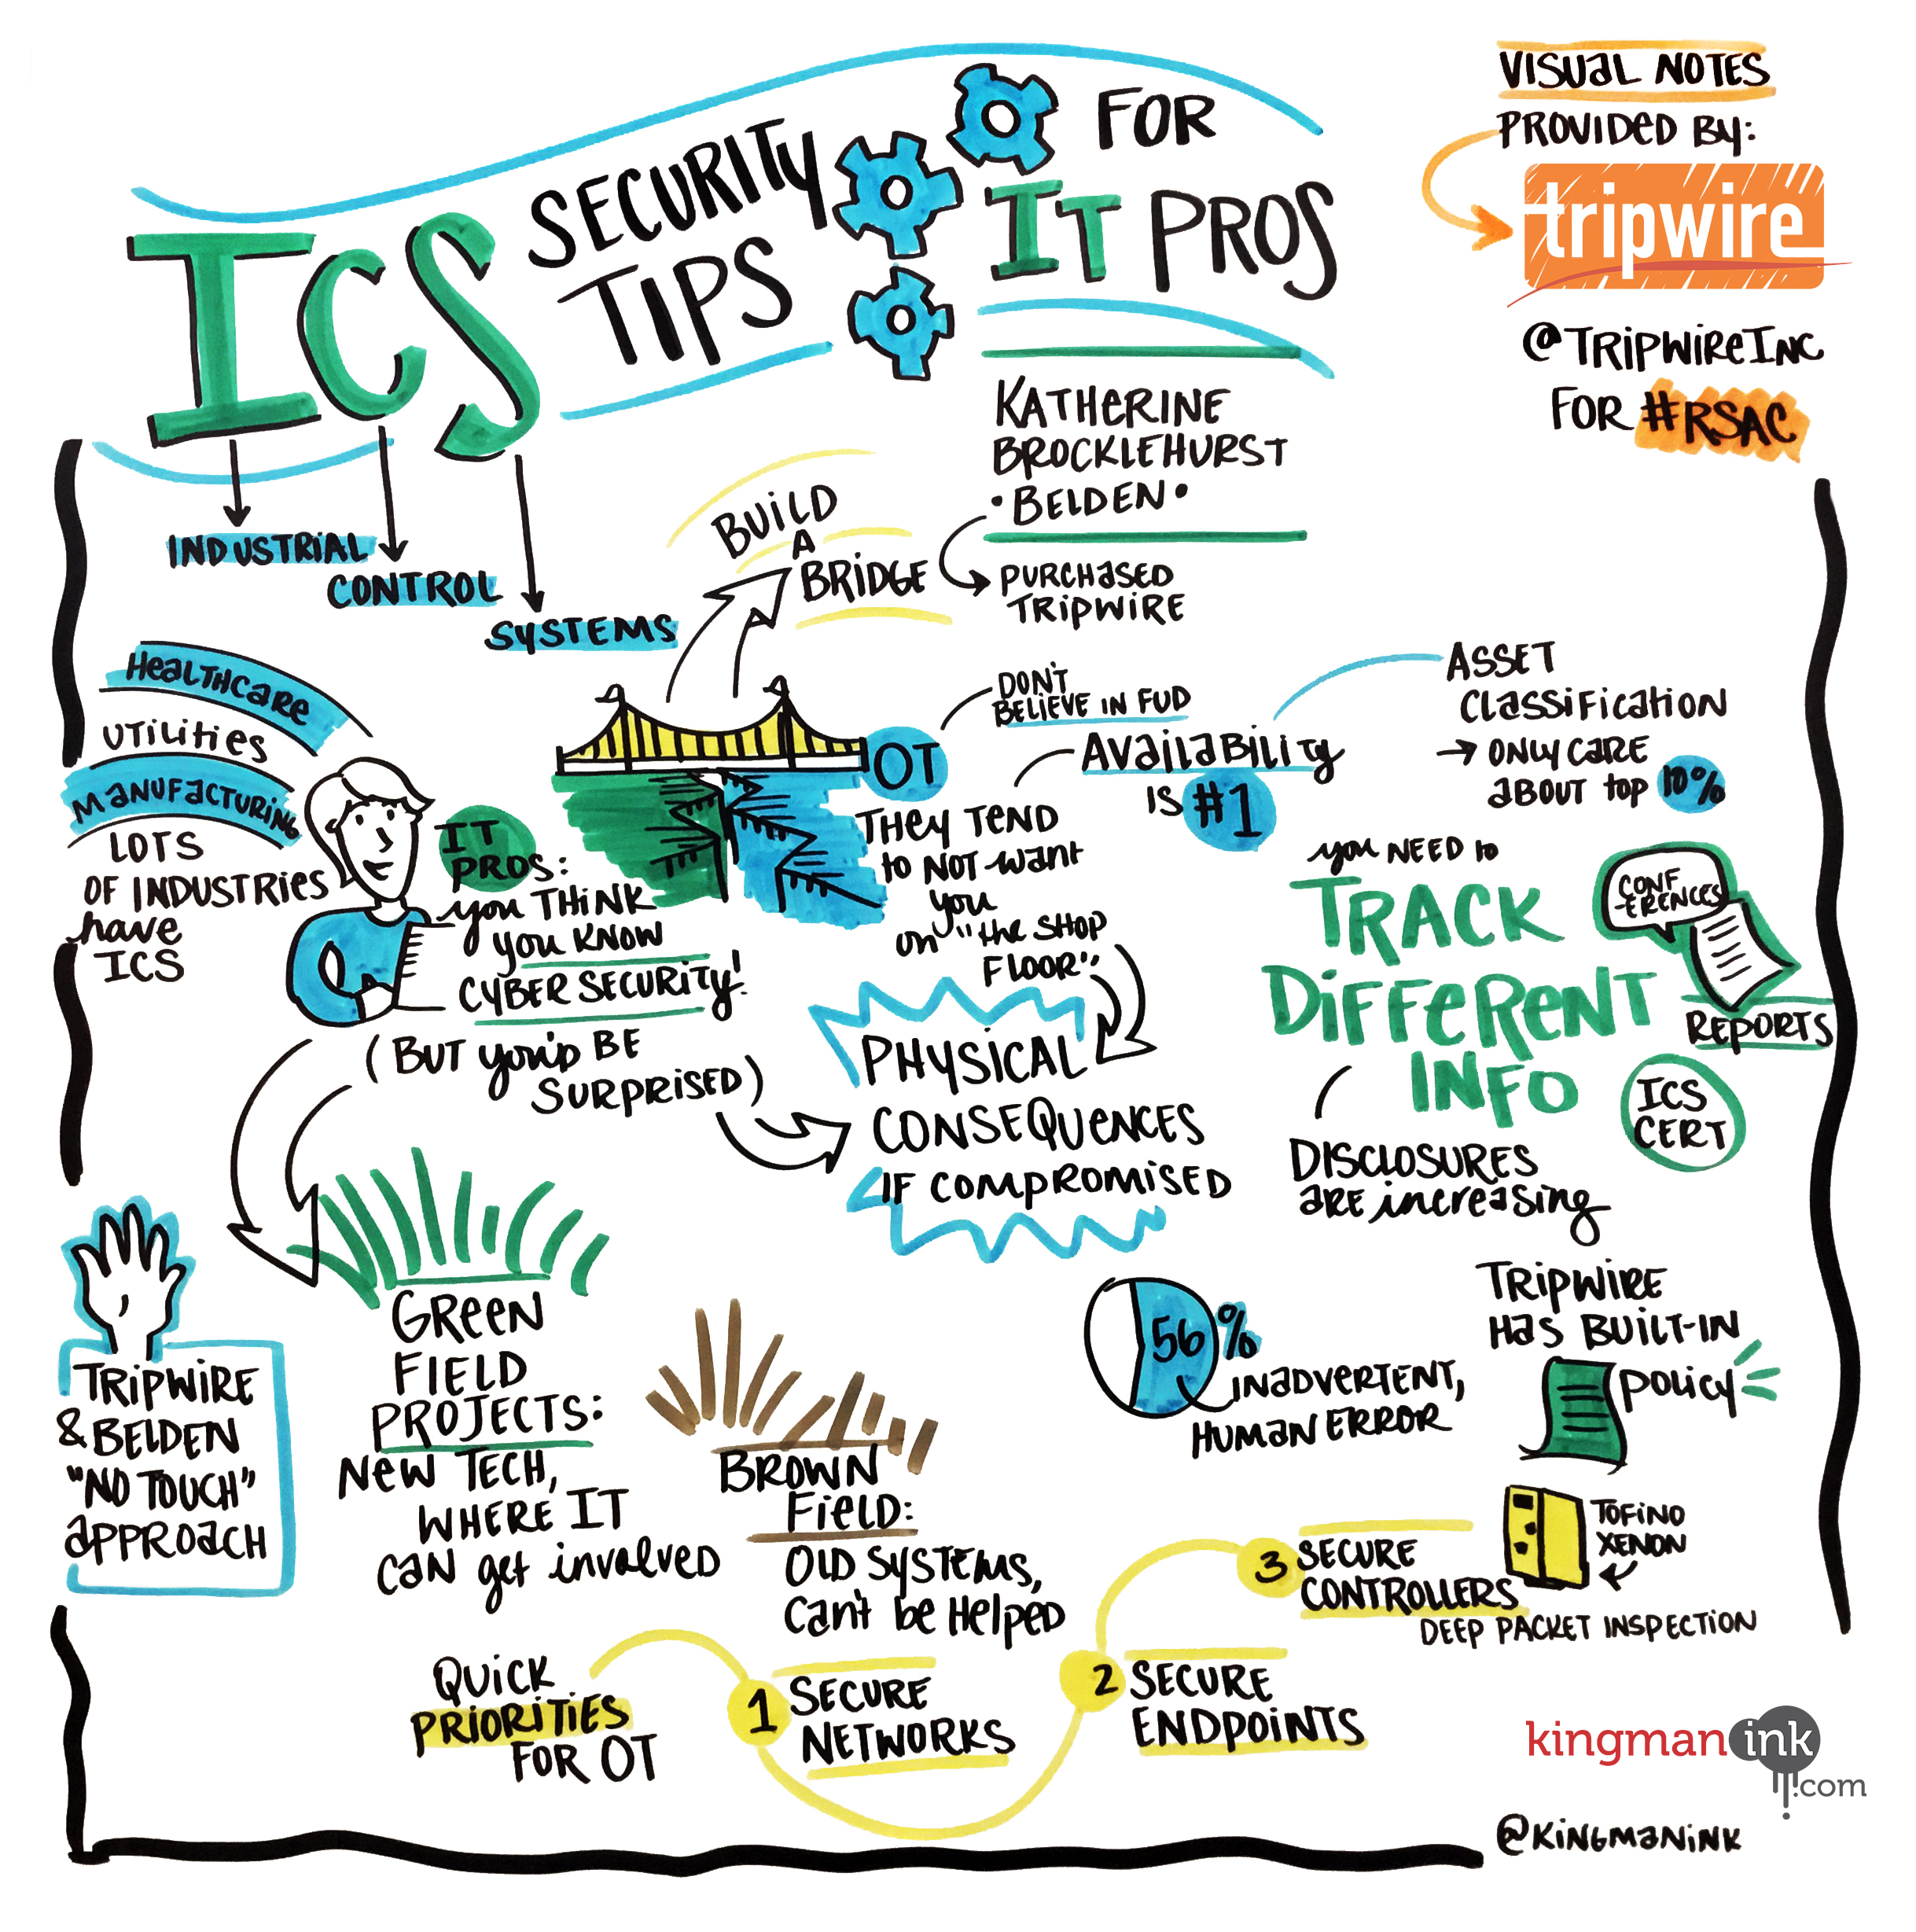 ICS
SECURITY
TIPS
FOR
IT PROS
VISUAL NOTES
PROVIDED BY:
tripwire
@TRIPWIREINC
FOR #RSAC
KATHERINE
BROCKLEHURST
• BELDEN •
PURCHASED
TRIPWIRE
INDUSTRIAL
CONTROL
SYSTEMS
BUILD
A
BRIDGE
HEALTHCARE
UTILITIES
MANUFACTURING
LOTS
OF INDUSTRIES
have
ICS
IT
PROS:
you THINK
you KNOW
CYBER SECURITY!
(BUT you'D BE
SURPRISED)
OT
DON'T
BELIEVE IN FUD
AVAILABILITY
IS #1
THEY TEND
to NOT want
you
on "the SHOP
FLOOR"
ASSET
CLASSIFICATION
→ ONLY CARE
ABOUT top 10%
you NEED to
TRACK
DIFFERENT
INFO
CONF
ERENCES
REPORTS
ICS
CERT
DISCLOSURES
ARE increasing
PHYSICAL
CONSEQUENCES
IF COMPROMISED
TRIPWIRE
& BELDEN
"NO TOUCH"
APPROACH
GREEN
FIELD
PROJECTS:
NEW TECH,
WHERE IT
CAN get involved
BROWN
FIELD:
OLD SYSTEMS,
CAN'T be HELPED
56%
INADVERTENT,
HUMAN ERROR
TRIPWIRE
HAS BUILT-IN
POLICY
TOFINO
XENON
QUICK
PRIORITIES
FOR OT
1 SECURE
NETWORKS
2 SECURE
ENDPOINTS
3 SECURE
CONTROLLERS
DEEP PACKET INSPECTION
kingman ink
.com
@KINGMANINK